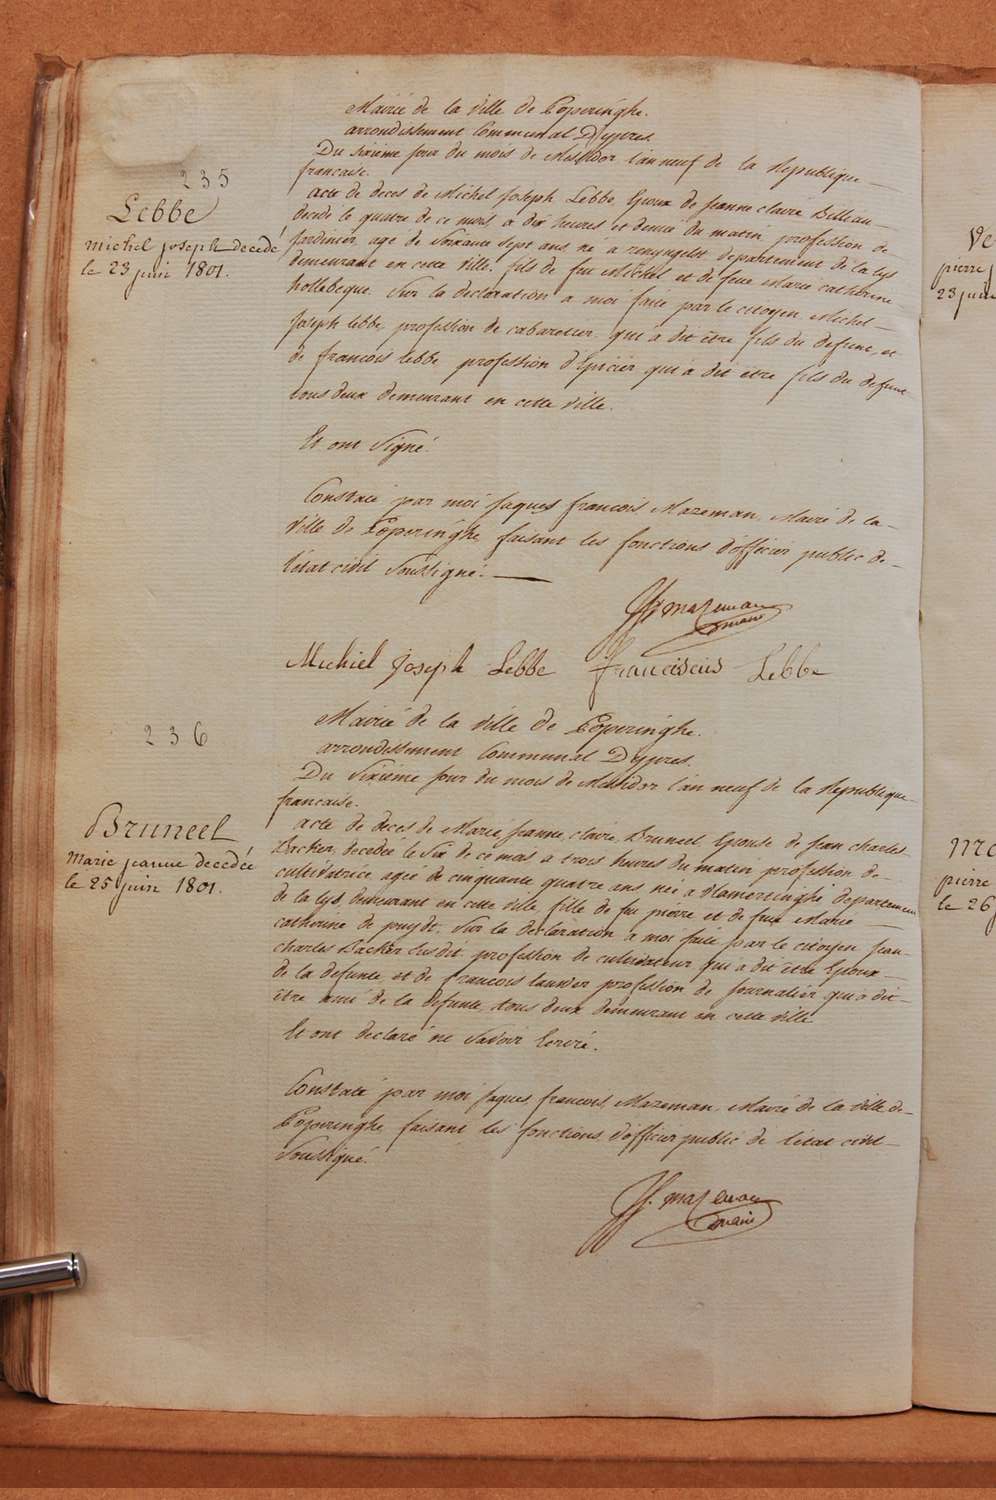 235
Lebbe
michel joseph decedé
le 23 juin 1801.
Mairie de la Ville de Poperinghe.
arrondissement Communal D'ypres.
Du sixième jour du mois de Messidor l'an neuf de la Republique
francaise.
acte de deces de Michel Joseph Lebbe, Epoux de Jeanne claire Billeau
decedé le quatre de ce mois, a dix heures et demie du matin, profession de
Jardinier, agé de Soixante sept ans, né a renynghelst departement de la lys
demeurant en cette ville, fils de feu Michel et de feue Marie catherine
hollebeque. Sur la declaration a moi faite par le citoyen Michel
Joseph lebbe, profession de cabaretier qui a dit être fils du defunt, et
de francois lebbe profession d'Epicier qui a dit être fils du defunt
tous deux demeurant en cette ville.
Et ont Signé.
Constaté par moi Jaques francois Mazeman, Maire de la
Ville de Poperinghe faisant les fonctions d'officier public de
l'état civil Soussigné.
JF mazeman
maire
Michiel Joseph Lebbe Franciscus Lebbe
236
Bruneel
Marie jeanne decedée
le 25 juin 1801.
Mairie de la Ville de Poperinghe.
arrondissement Communal D'ypres.
Du Sixième jour du mois de Messidor l'an neuf de la Republique
francaise.
acte de deces de Marie Jeanne claire Bruneel Epouse de Jean charles
Backer, decedée le Six de ce mois a trois heures du matin profession de
cultivatrice, agée de cinquante quatre ans née a Vlamertinghe departement
de la lys, demeurant en cette ville fille de feu pierre et de feue Marie
catherine de puydt. Sur la declaration a moi faite par le citoyen Jean
charles Backer Susdit profession de cultivateur qui a dit être Epoux
de la defunte et de francois profession de journalier qui a dit
être ami de la defunte, tous deux demeurant en cette ville
Et ont declaré ne Savoir Ecrire.
Constaté par moi Jaques francois Mazeman, Maire de la Ville de
Poperinghe faisant les fonctions d'officier public de l'état civil
Soussigné.
JF. mazeman
maire
pierre
23 juin
pierre
le 26